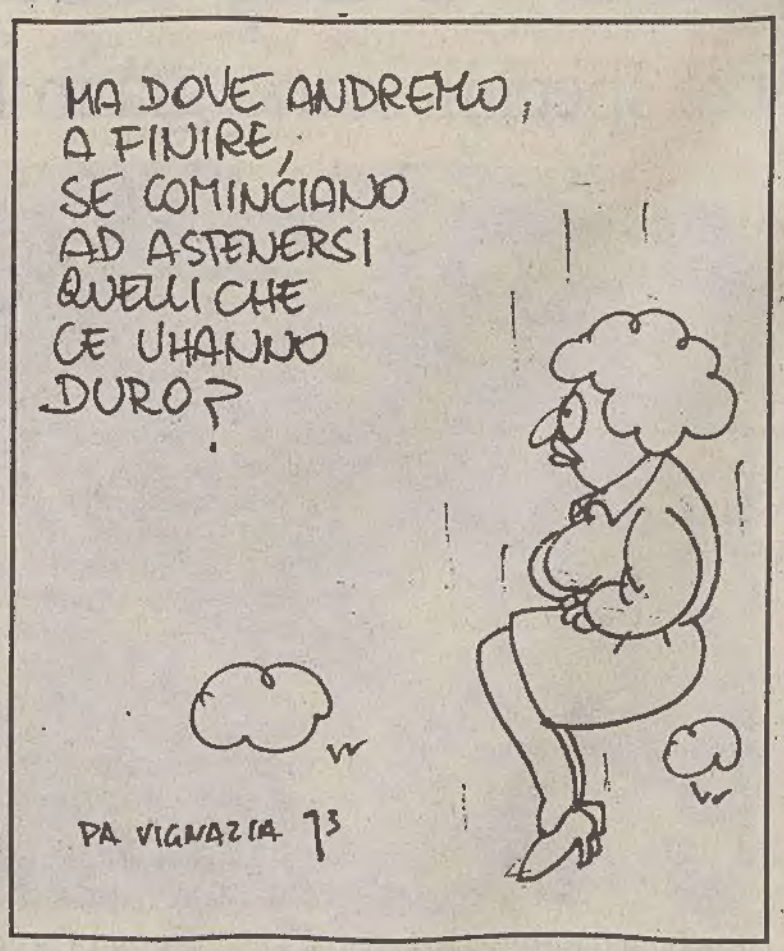 MA DOVE ANDREMO,
A FINIRE,
SE COMINCIANO
AD ASTENERSI
QUELLI CHE
CE L'HANNO
DURO?
PA VIGNAZIA 93